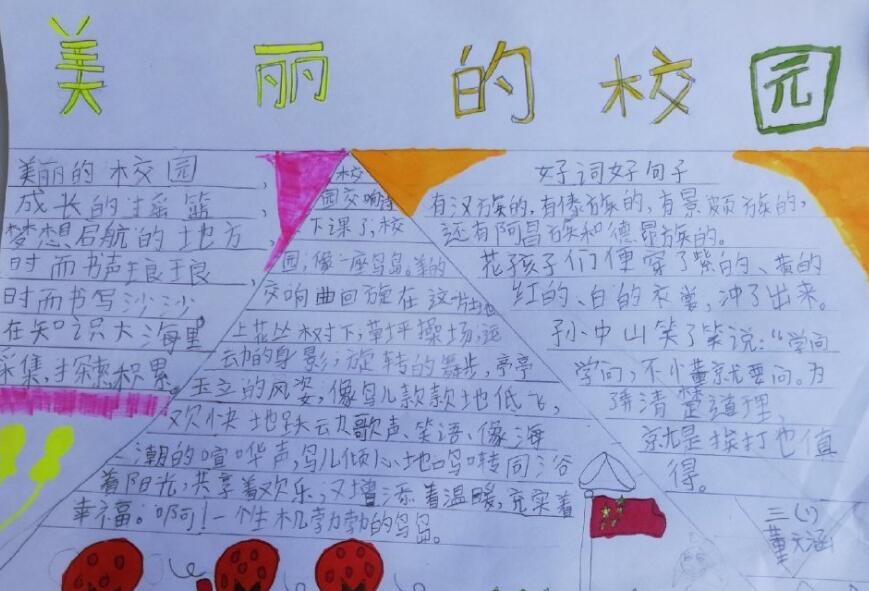 美丽的校园
美丽的校园,
成长的摇篮,
梦想启航的地方,
时而书声琅琅,
时而书写沙沙
在知识大海里
采集,探索积累。
校
园交响
下课了,校
园,像一座鸟岛。美的
交响曲回旋在这片土地
上花丛树下,草坪操场,运
动的身影,旋转的舞步,亭亭
玉立的风姿,像鸟儿款款地低飞,
欢快地跃动歌声、笑语、像海
潮的喧哗声,鸟儿倾心地鸣啭同浴
着阳光,共享着欢乐,又增添着温暖,充实着
幸福。啊!一个生机勃勃的鸟岛。
好词好句子
有汉族的,有傣族的,有景颇族的,
还有阿昌族和德昂族的。
花孩子们便穿了紫的、黄的
红的、白的衣裳,冲了出来。
孙中山笑了笑说:“学问
学问,不懂就要问。为
弄清楚道理,
就是挨打也值
得。
三(1)
董天涵